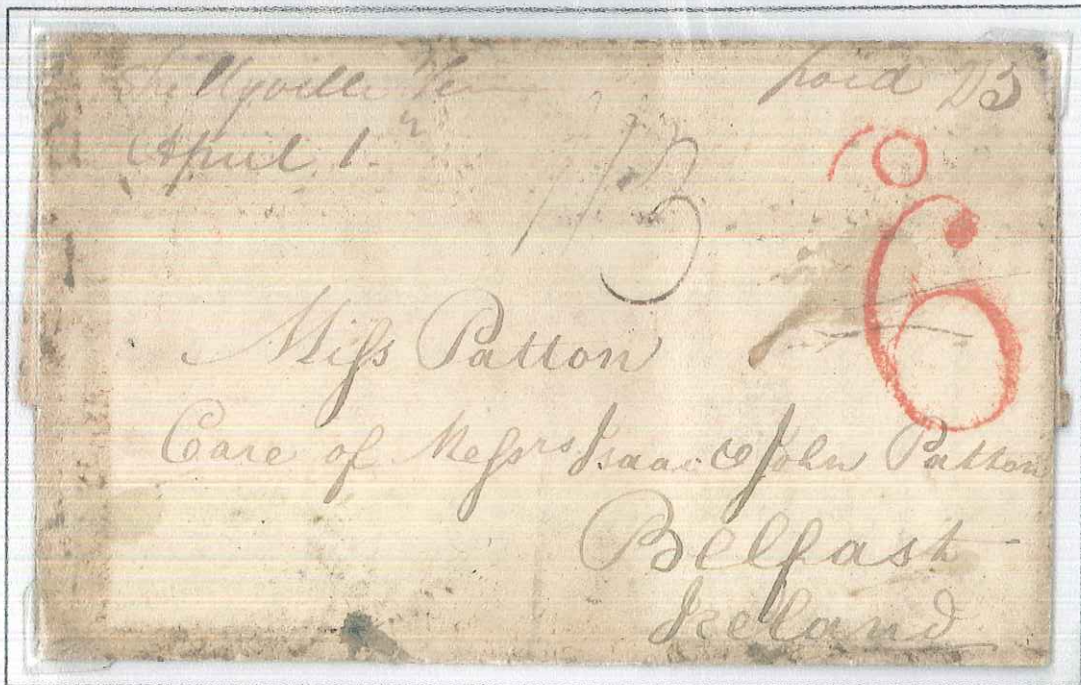 Shellyville Ten
paid 25
April 1
1/3
6
Miſs Patton
Care of Meſsrs Isaac & John Patton
Belfast
Ireland